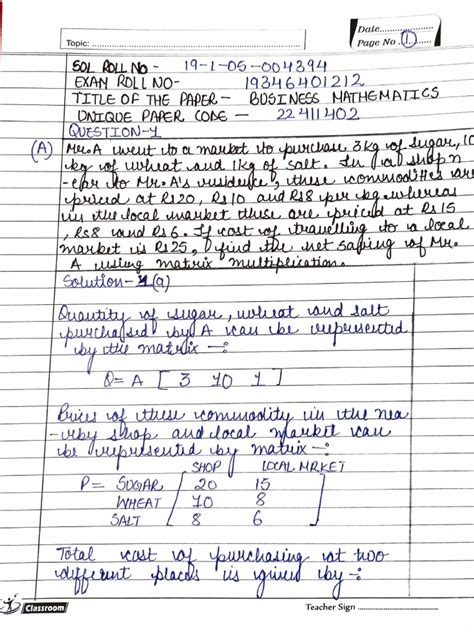 Date..................
Page No. 1......
Topic: ......................................................
SOL ROLL NO - 19-1-05-004394
EXAM ROLL NO- 19346401212
TITLE OF THE PAPER - BUSINESS MATHEMATICS
UNIQUE PAPER CODE - 22411402
QUESTION-1
(A) Mr. A went to a market to purchase 3kg of sugar, 10
kg of wheat and 1kg of salt. In a shop n
-ear to Mr. A's residence, these commodities are
priced at Rs20, Rs10 and Rs8 per kg whereas
in the local market these are priced at Rs15
, Rs8 and Rs6. If cost of travelling to a local
market is Rs25, find the net saping of Mr.
A using matrix multiplication.
Solution-1(a)
Quantity of sugar, wheat and salt
purchased by A can be represented
by the matrix -:
Q= A [ 3 10 1 ]
Prices of these commodity in the nea
-rby shop and local market can
be represented by matrix -:
SHOP LOCAL MRKET
P= SUGAR 20 15
WHEAT 10 8
SALT 8 6
Total cost of purchasing at two
different places is given by -:
Classroom
Teacher Sign ..............................